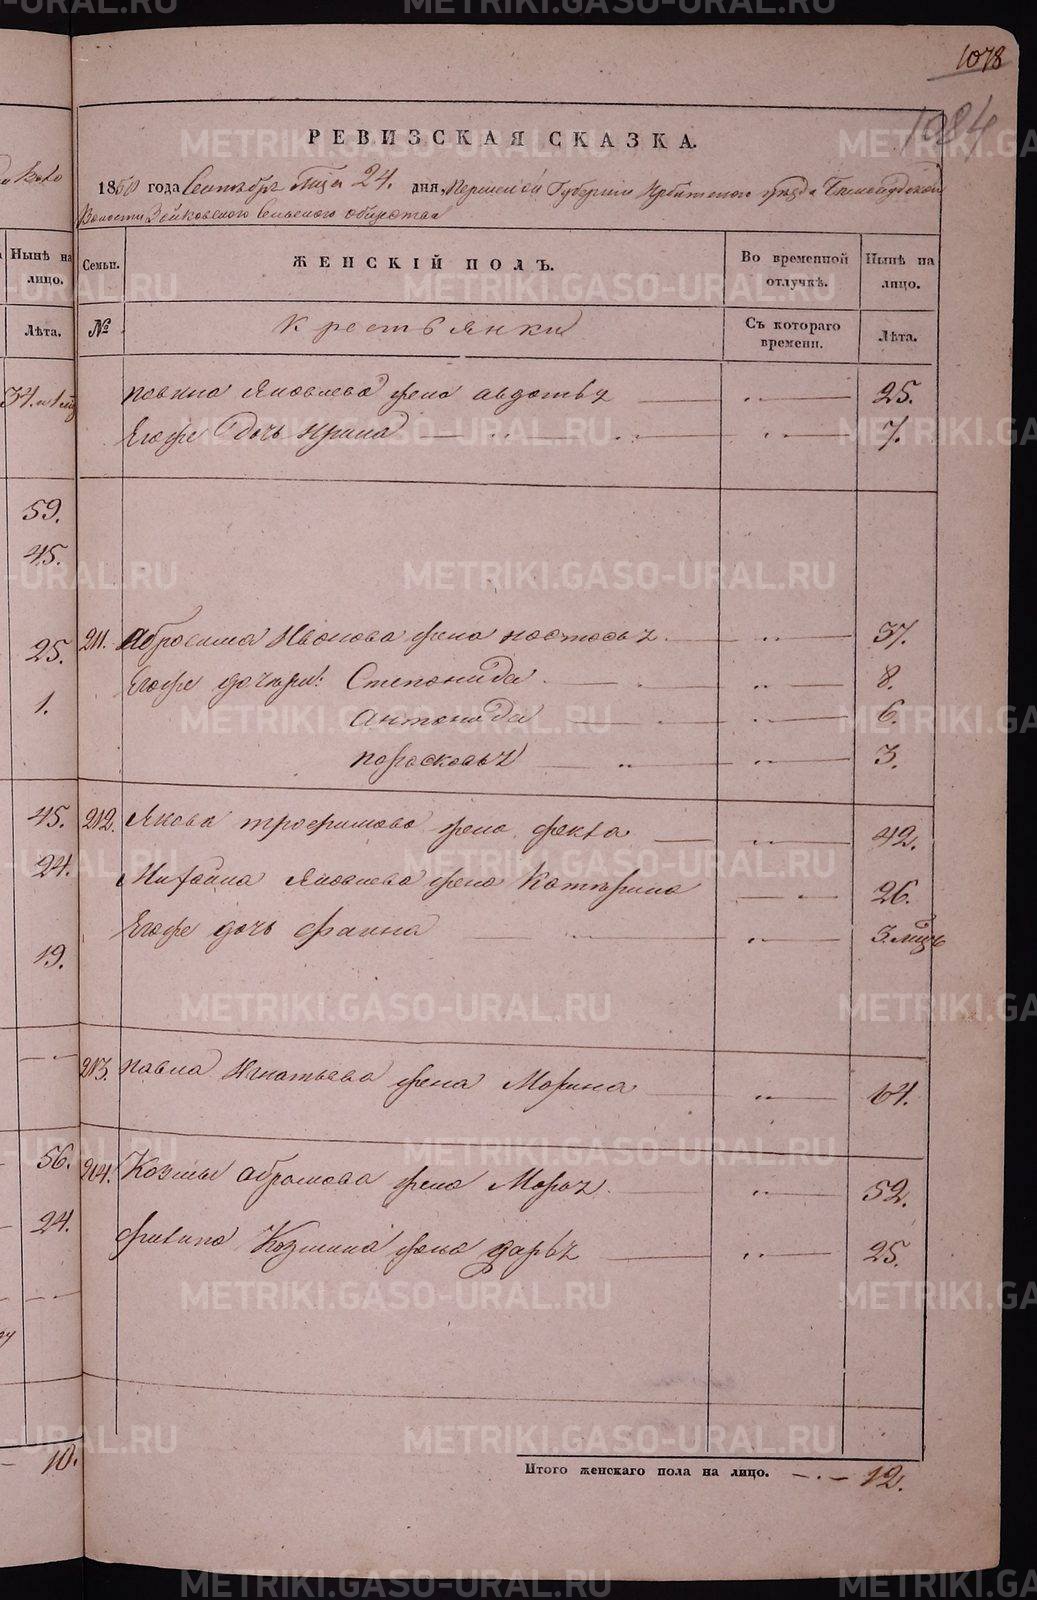 1078
1084
РЕВИЗСКАЯ СКАЗКА.
1850 года Сентября мца 24. дня, Пермской Губернии Ирбитскаго уезда
Волости Зайковского Сельского общества
Ныне на лицо.
Семьи.
ЖЕНСКІЙ ПОЛЪ.
Во временной отлучкѣ.
Нынѣ на лицо.
Лѣта.
№
Крестьянки
Съ котораго времени.
Лѣта.
Яковлева жена Авдотья 25.
Егоже дочь Ирина 7.
59.
45.
211. Абросима Иванова жена Настасья 37.
25.
Егоже дочери: Степонида 8.
1.
Антонида 6.
Поросковья 3.
45. 212. Якова Трофимова жена Фекла 42.
24. Михайла Яковлева жена Катерина 26.
Егоже дочь Фаина 3. мцъ
19.
213. Павла Игнатьева жена Морина 61.
56. 214. Козмы Абрамова жена Морья 52.
24. Филипа Козмина жена Дарья 25.
10. Итого женскаго пола на лицо. 12.
METRIKI.GASO-URAL.RU